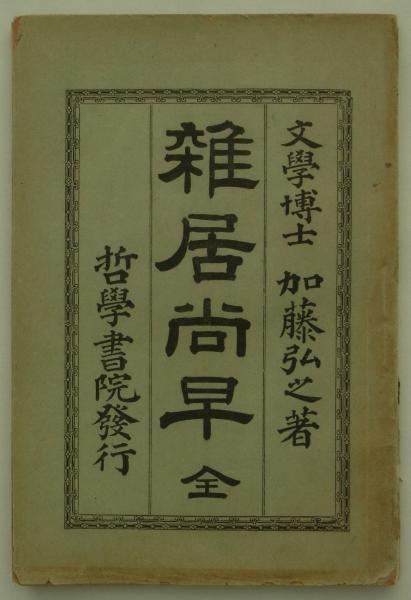 文學博士 加藤弘之著
雑居尚早 全
哲學書院發行